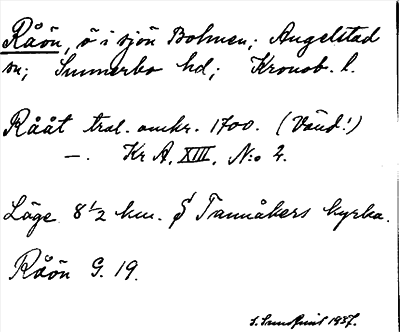 Råön, ö i sjön Bolmen; Angelstad
sn; Sunnerbo hd; Kronob. l.
Rååt tral. omkr. 1700. (Vänd!)
—. Kr A. XIII. N:o 2.
Läge 8 1/2 km. S Tannåkers kyrka.
Råön G. 19.
S. Sundquist 1937.